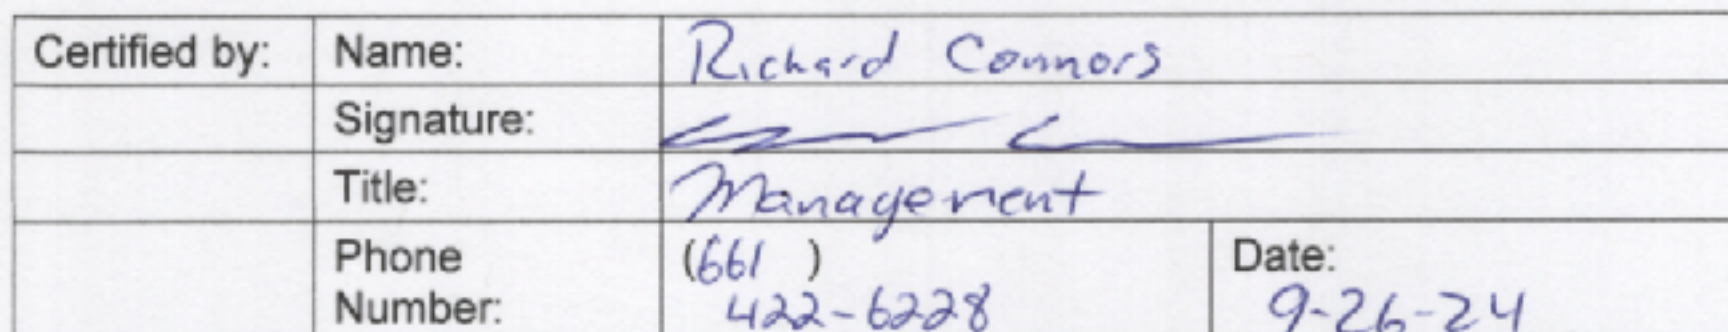 Certified by: Name: Richard Connors
Signature:
Title: Management
Phone (661 ) Date:
Number: 422-6228 9-26-24